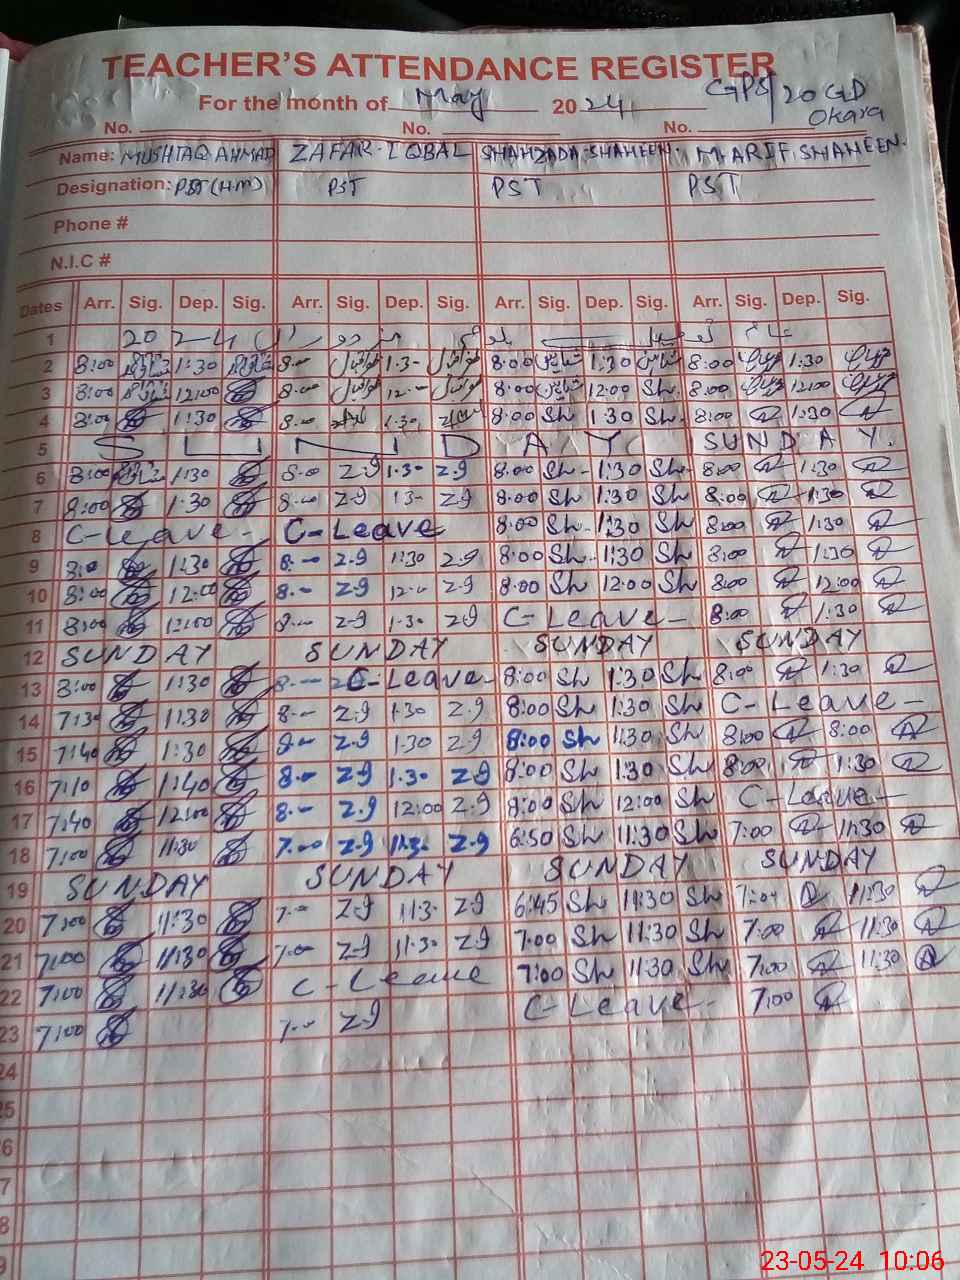 TEACHER'S ATTENDANCE REGISTER
For the month of May 2024 GPS/20 GD
Okara
No. No. No.
Name: MUSHTAQ AHMAD ZAFAR IQBAL SHAHZADA SHAHEEN. M. ARIF SHAHEEN.
Designation: PST (HM) PST PST PST
Phone #
N.I.C #
Dates Arr. Sig. Dep. Sig. Arr. Sig. Dep. Sig. Arr. Sig. Dep. Sig. Arr. Sig. Dep. Sig.
1 2024 عام تعطیل
2 8:00 1:30 8:00 1:30 8:00 1:30 8:00 1:30
3 8:00 12:00 8:00 12:00 8:00 12:00 Sh. 8:00 12:00
4 8:00 1:30 8:00 1:30 8:00 Sh 1:30 Sh. 8:00 1:30
5 SUNDAY SUNDAY.
6 8:00 1:30 8:00 Z-9 1:30 Z-9 8:00 Sh- 1:30 Sh- 8:00 1:30
7 8:00 1:30 8:00 Z-9 1:30 Z-9 8:00 Sh 1:30 Sh 8:00 1:30
8 C-Leave - C-Leave 8:00 Sh- 1:30 Sh 8:00 1:30
9 8:00 1:30 8:00 Z-9 1:30 Z-9 8:00 Sh- 1:30 Sh 8:00 1:30
10 8:00 12:00 8:00 Z-9 12:00 Z-9 8:00 Sh 12:00 Sh 8:00 12:00
11 8:00 12:00 8:00 Z-9 1:30 Z-9 C-Leave- 8:00 1:30
12 SUNDAY SUNDAY SUNDAY SUNDAY
13 8:00 1:30 8:00 C-Leave- 8:00 Sh 1:30 Sh 8:00 1:30
14 7:30 1:30 8:00 Z-9 1:30 Z-9 8:00 Sh 1:30 Sh C-Leave-
15 7:40 1:30 8:00 Z-9 1:30 Z-9 8:00 Sh 1:30 Sh 8:00 8:00
16 7:10 1:40 8:00 Z-9 1:30 Z-9 8:00 Sh 1:30 Sh 8:00 1:30
17 7:40 12:00 8:00 Z-9 12:00 Z-9 8:00 Sh 12:00 Sh C-Leave-
18 7:00 11:30 7:00 Z-9 11:30 Z-9 6:50 Sh 11:30 Sh 7:00 11:30
19 SUNDAY SUNDAY SUNDAY SUNDAY
20 7:00 11:30 7:00 Z-9 11:30 Z-9 6:45 Sh 11:30 Sh 7:00 11:30
21 7:00 11:30 7:00 Z-9 11:30 Z-9 7:00 Sh 11:30 Sh 7:00 11:30
22 7:00 11:30 C-Leave 7:00 Sh 11:30 Sh 7:00 11:30
23 7:00 7:00 Z-9 C-Leave- 7:00
24
25
6
7
8
9
23-05-24 10:06